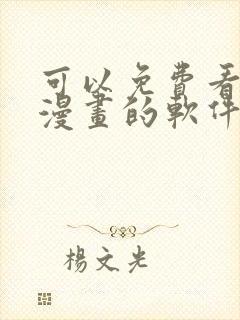 可以免費看
漫畫的軟件
楊文光